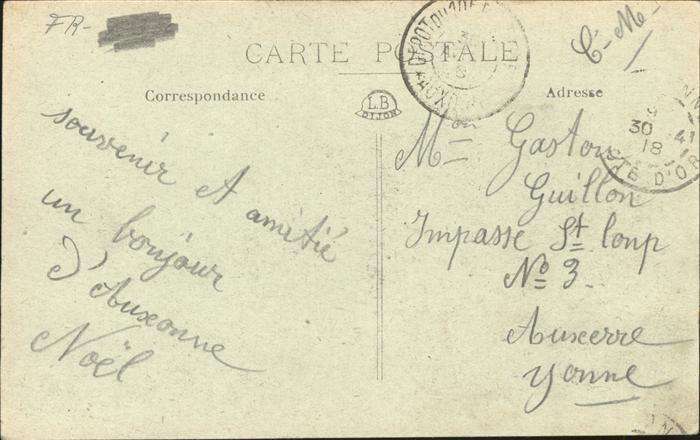 FR-
C-M-
CARTE POSTALE
Correspondance
Adresse
L.B
DIJON
souvenir et amitié
un bonjour
d'Auxonne
Noël
Mon Gaston
Guillon
Impasse St loup
No 3.
Auxerre
Yonne
30
18
41
CÔTE D'O